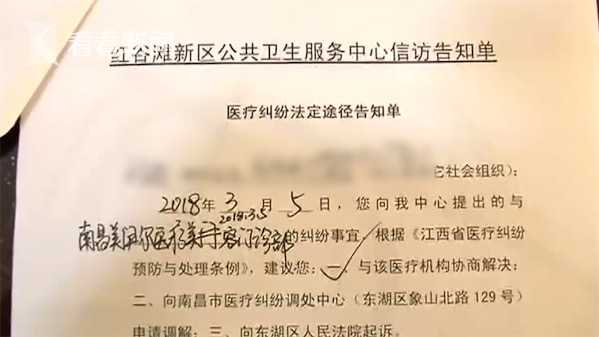 看看新闻
红谷滩新区公共卫生服务中心信访告知单
医疗纠纷法定途径告知单
社会组织):
2018年 3 月 5 日,您向我中心提出的与
2018.3.5
南昌美贝尔医疗美容门诊部的纠纷事宜,根据《江西省医疗纠纷
预防与处理条例》,建议您:一、与该医疗机构协商解决;
二、向南昌市医疗纠纷调处中心(东湖区象山北路 129 号)
申请调解;三、向东湖区人民法院起诉。